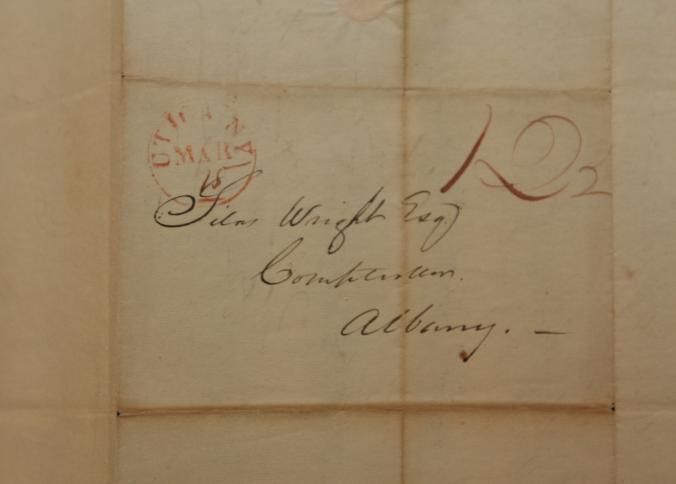 MAR
15
12½
Silas Wright Esqr
Comptroller.
Albany. —